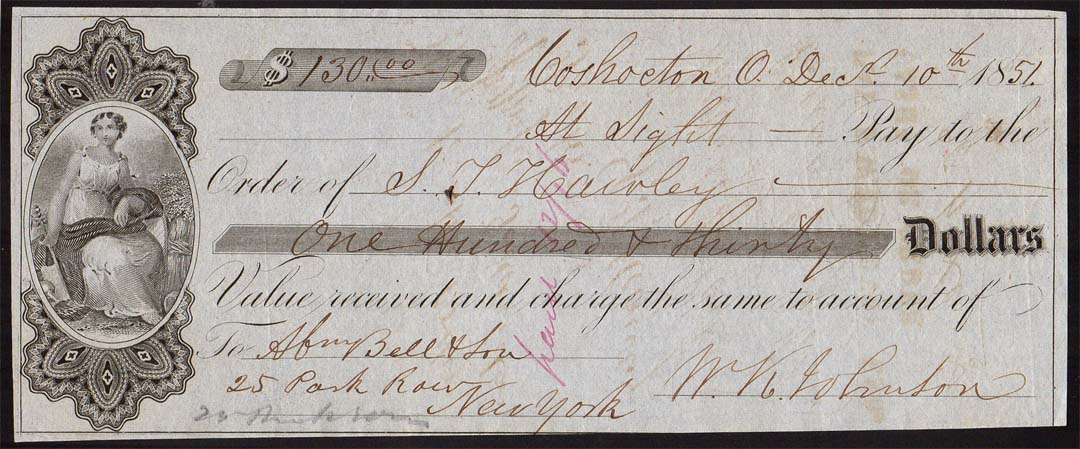 $ 130.00 Coshocton O. Dec. 10th 1851.
At Sight — Pay to the
Order of S. T. Hawley
One Hundred & Thirty Dollars
Value received and charge the same to account of
To Abm Bell & Son
25 Park Row W. K. Johnson
New York
paid